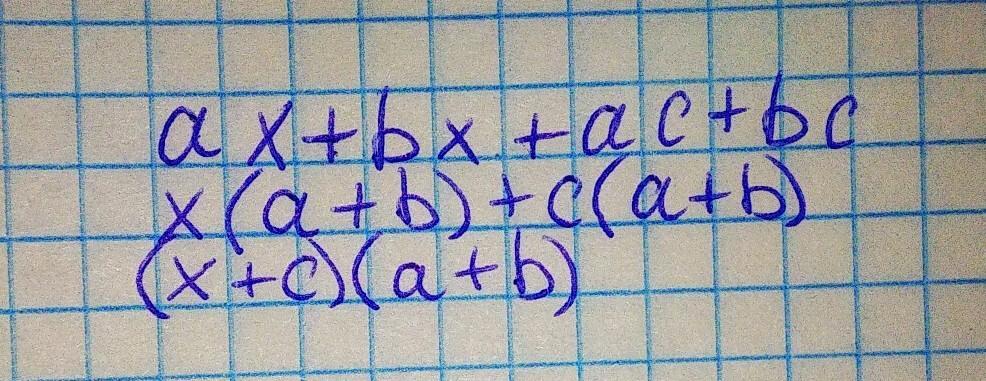 ax+bx+ac+bc
x(a+b)+c(a+b)
(x+c)(a+b)